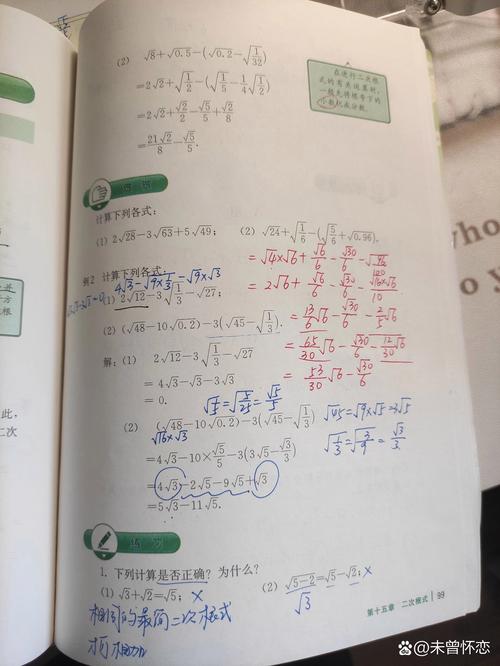 (2) √8+√0.5-(√0.2-√(1/32))
=2√2+√(1/2)-(√(1/5)-1/4√(1/2))
=2√2+√2/2-√5/5+√2/8
=21√2/8-√5/5.
在进行二次根
式的有关运算时,
一般先将根号下的
小数化成分数.
计算下列各式:
(1) 2√28-3√63+5√49; (2) √24+√(1/6)-(√(5/6)+√0.96).
=√4×√6+√6/6-√30/6-√(96/100)
=2√6+√6/6-√30/6-√16×√6/10
=13/6√6-√30/6-2/5√6
=65/30√6-√30/6-12/30√6
=53/30√6-√30/6
例2 计算下列各式:
4√3-√9×√3-√9×√3
(1) 2√12-3√(1 1/3)-√27;
(2) (√48-10√0.2)-3(√45-√(1/3)).
解:(1) 2√12-3√(1/3)-√27
=4√3-√3-3√3
=0.
√(1/5)=√(5/25)=√5/5
(2) (√48-10√0.2)-3(√45-√(1/3))
√16×√3
√45=√9×√5=3√5
=4√3-10×√5/5-3(3√5-√3/3)
√(1/3)=√(3/9)=√3/3
=4√3-2√5-9√5+√3
=5√3-11√5.
练习
1. 下列计算是否正确?为什么?
(1) √3+√2=√5; × (2) √(5-2)=√5-√2; ×
√3
相同的最简二次根式
才可相加
第十五章 二次根式 99
百家号/未曾怀恋
who
o yo